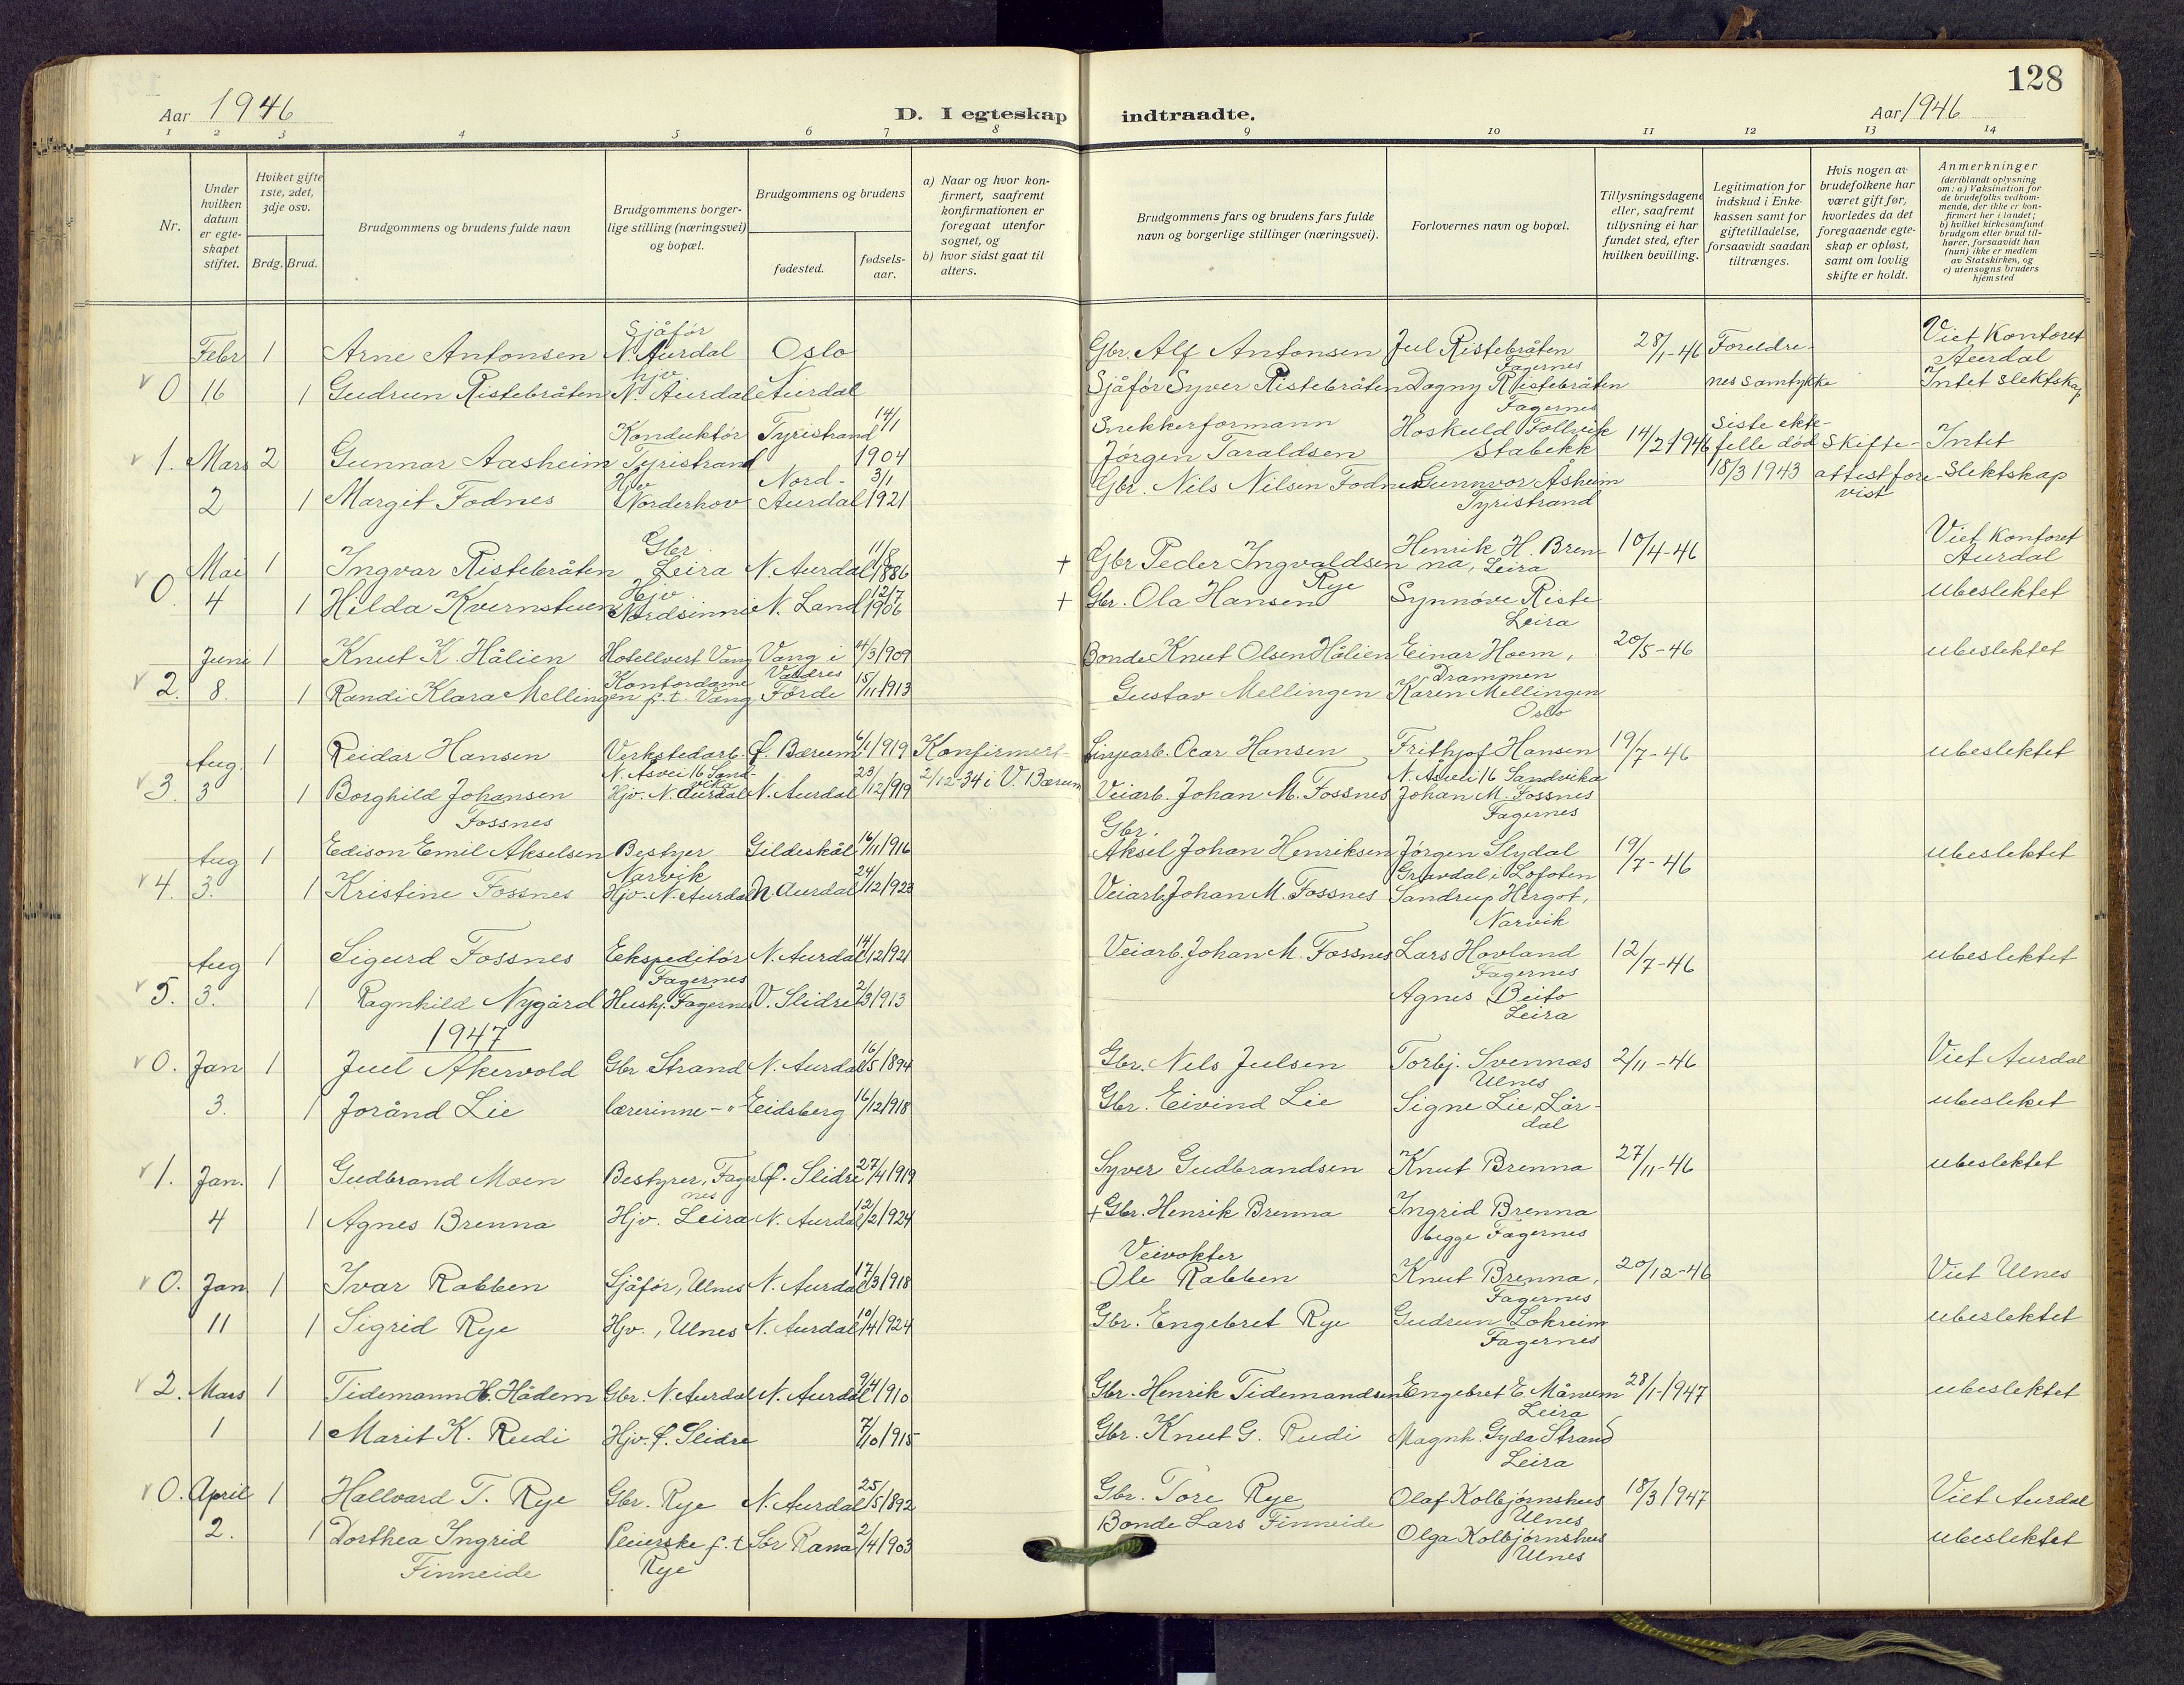 128
Aar 1946
D. I egteskap indtraadte.
Aar 1946
1 2 3 4 5 6 7 8 9 10 11 12 13 14
Nr.
Under hvilken datum er egteskapet stiftet.
Hviket gifte 1ste, 2det, 3dje osv.
Brdg. Brud.
Brudgommens og brudens fulde navn
Brudgommens borgerlige stilling (næringsvei) og bopæl.
Brudgommens og brudens
fødested.
fødselsaar.
a) Naar og hvor konfirmert, saafremt konfirmationen er foregaat utenfor sognet, og
b) hvor sidst gaat til alters.
Brudgommens fars og brudens fars fulde navn og borgerlige stillinger (næringsvei).
Forlovernes navn og bopæl.
Tillysningsdagene eller, saafremt tillysning ei har fundet sted, efter hvilken bevilling.
Legitimation for indskud i Enkekassen samt for giftetilladelse, forsaavidt saadan tiltrænges.
Hvis nogen av brudefolkene har været gift før, hvorledes da det foregaaende egteskap er opløst, samt om lovlig skifte er holdt.
Anmerkninger (deriblandt oplysning om: a) Vaksination for de brudefolks vedkommende, der ikke er konfirmert her i landet; b) hvilket kirkesamfund brudgom eller brud tilhører, forsaavidt han (hun) ikke er medlem av Statskirken, og c) utensogns bruders hjemsted
Febr 1 Arne Antonsen Sjåfør N. Aurdal Oslo Gbr. Alf Antonsen Jul Ristebråten Fagernes 28/1-46 Foreldre- Viet Kontoret Aurdal
0 16 1 Gudrun Ristebråten hjv N. Aurdal Aurdal Sjåfør Syver Ristebråten Dagny Ristebråten Fagernes nes samtykke Intet slektskap
1. Mars 2 Gunnar Aasheim Konduktør Tyristrand Tyristrand 14/1 1904 Snekkerformann Jørgen Taraldsen Hoskuld Follvik Stabekk 14/2 1946 Siste ektefelle død 18/3 1943 Skifteattest forevist Intet
2 1 Margit Fodnes Hjv Norderhov Nord-Aurdal 3/1 1921 Gbr. Nils Nilsen Fodnes Gunnvor Åsheim Tyristrand Slektskap
0 Mai 1 Ingvar Ristebråten Gbr Leira N. Aurdal 11/8 1886 + Gbr Peder Ingvaldsen Henrik H. Brenna, Leira 10/4-46 Viet Kontoret Aurdal
4 1 Hilda Kvernstuen Hjv Nordsinni N. Land 12/7 1906 + Gbr. Ola Hansen Rye Synnøve Riste Leira ubeslektet
2. Juni 1 Knut K. Hålien Hotellvert Vang Vang i Valdres 4/3 1909 Bonde Knut Olsen Hålien Einar Hoem, Drammen 20/5-46 ubeslektet
8. 1 Randi Klara Mellingen Kontordame f.t. Vang Førde 15/11 1913 Gustav Mellingen Karen Mellingen Oslo
3. Aug. 1 Reidar Hansen Verkstedarb. N. Åsvei 16 Sandvika Ø. Bærum 6/1 1919 Konfirmert 2/12-34 i V. Bærum Hansen Frithjof Hansen N. Åsvei 16 Sandvika 19/7-46 ubeslektet
3 1 Borghild Johansen Fossnes Hjv. N. Aurdal N. Aurdal 23/12 1919 Veiarb. Johan M. Fossnes Johan M. Fossnes Fagernes
4. Aug 1 Edison Emil Akselsen Bestyer Narvik Gildeskål 16/11 1916 Gbr. Aksel Johan Henriksen Jørgen Slydal Gravdal i Lofoten 19/7-46 ubeslektet
3. 1 Kristine Fossnes Hjv. N. Aurdal N. Aurdal 24/12 1923 Veiarb Johan M. Fossnes Sandrup Hergot, Narvik
5. Aug 1 Sigurd Fossnes Ekspeditør Fagernes N. Aurdal 14/12 1921 Veiarb. Johan M. Fossnes Lars Hovland Fagernes 12/7-46 ubeslektet
3. 1 Ragnhild Nygård Hushj. Fagernes V. Slidre 2/3 1913 Agnes Beito Leira
1947
0. Jan 1 Juul Akervold Gbr Strand N. Aurdal 16/5 1894 Gbr. Nels Julsen Torbj. Svennæs Ulnes 2/11-46 Viet Aurdal
3. 1 Jorånd Lie lærerinne -"- Eidsberg 16/12 1918 Gbr. Eivind Lie Signe Lie, Lårdal ubesleket
1. Jan. 1 Gudbrand Moen Bestyrer, Fagernes Ø. Slidre 27/4 1919 Syver Gudbrandsen Knut Brenna 27/11-46 ubeslektet
4 1 Agnes Brenna Hjv. Leira N. Aurdal 12/2 1924 + Gbr. Henrik Brenna Ingrid Brenna begge Fagernes
0. Jan 1 Ivar Robben Sjåfør, Ulnes N. Aurdal 17/3 1918 Veivokter Ole Robben Knut Brenna, Fagernes 20/12-46 Viet Ulnes
11 1 Sigrid Rye Hjv., Ulnes N. Aurdal 10/4 1924 Gbr. Engebret Rye Gudrun Lokreim Fagernes ubeslektet
2. Mars 1 Tidemann H. Hådem Gbr. N. Aurdal N. Aurdal 9/4 1910 Gbr. Henrik Tidemandsen Engebret E. Månum Leira 28/1-1947 ubeslektet
1 1 Marit K. Rudi Hjv. Ø. Slidre 7/10 1915 Gbr. Knut G. Rudi Magnh. Gyda Strand Leira
0. April 1 Hallvard T. Rye Gbr. Rye N. Aurdal 25/5 1892 Gbr. Tore Rye Olaf Kolbjørnshus Ulnes 18/3 1947 Viet Aurdal
2. 1 Dorthea Ingrid Finneide Pleierske f.t. Rye Sør Rana 2/4 1903 Bonde Lars Finneide Olga Kolbjørnshus Ulnes ubeslektet